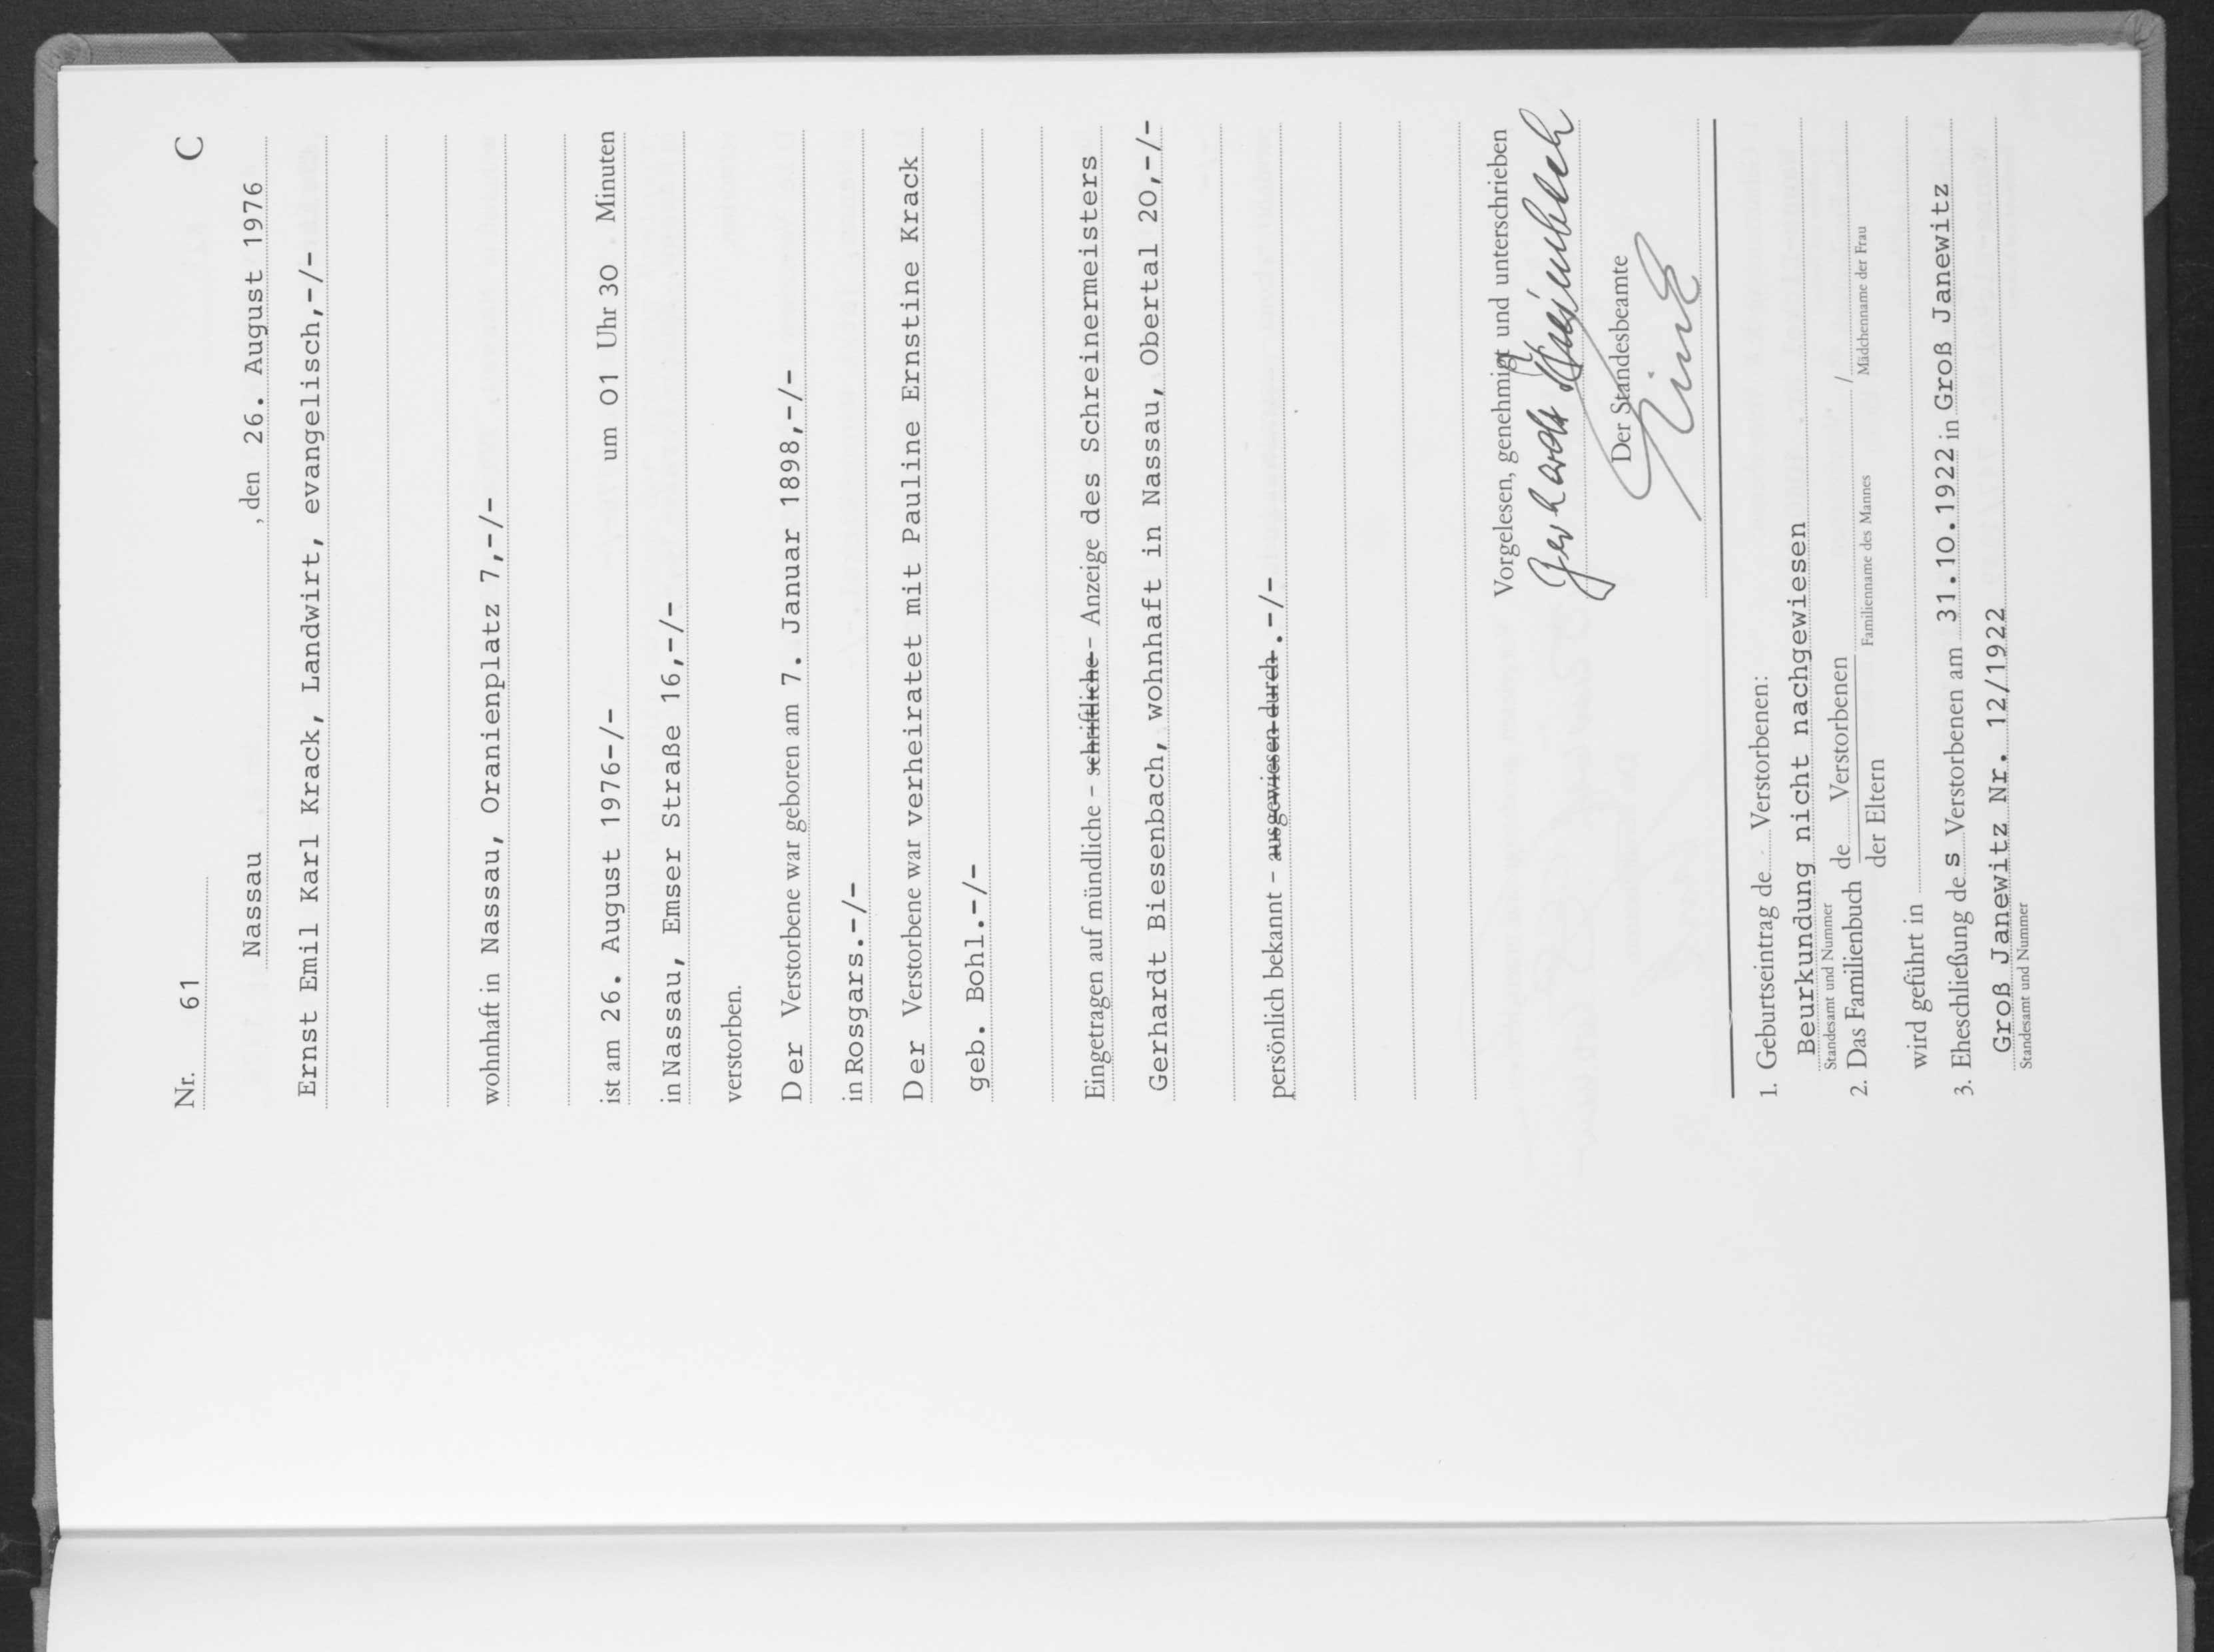 Nr. 61 C
Nassau , den 26. August 1976
Ernst Emil Karl Krack, Landwirt, evangelisch,-/-
wohnhaft in Nassau, Oranienplatz 7,-/-
ist am 26. August 1976-/- um 01 Uhr 30 Minuten
in Nassau, Emser Straße 16,-/-
verstorben.
Der Verstorbene war geboren am 7. Januar 1898,-/-
in Rosgars.-/-
Der Verstorbene war verheiratet mit Pauline Ernstine Krack
geb. Bohl.-/-
Eingetragen auf mündliche - schriftliche - Anzeige des Schreinermeisters
Gerhardt Biesenbach, wohnhaft in Nassau, Obertal 20,-/-
persönlich bekannt - ausgewiesen durch .-/-
Vorgelesen, genehmigt und unterschrieben
Gerhardt Biesenbach
Der Standesbeamte
1. Geburtseintrag de Verstorbenen:
Beurkundung nicht nachgewiesen
Standesamt und Nummer
2. Das Familienbuch de Verstorbenen /
der Eltern Familienname des Mannes Mädchenname der Frau
wird geführt in
3. Eheschließung des Verstorbenen am 31.10.1922 in Groß Janewitz
Groß Janewitz Nr. 12/1922
Standesamt und Nummer